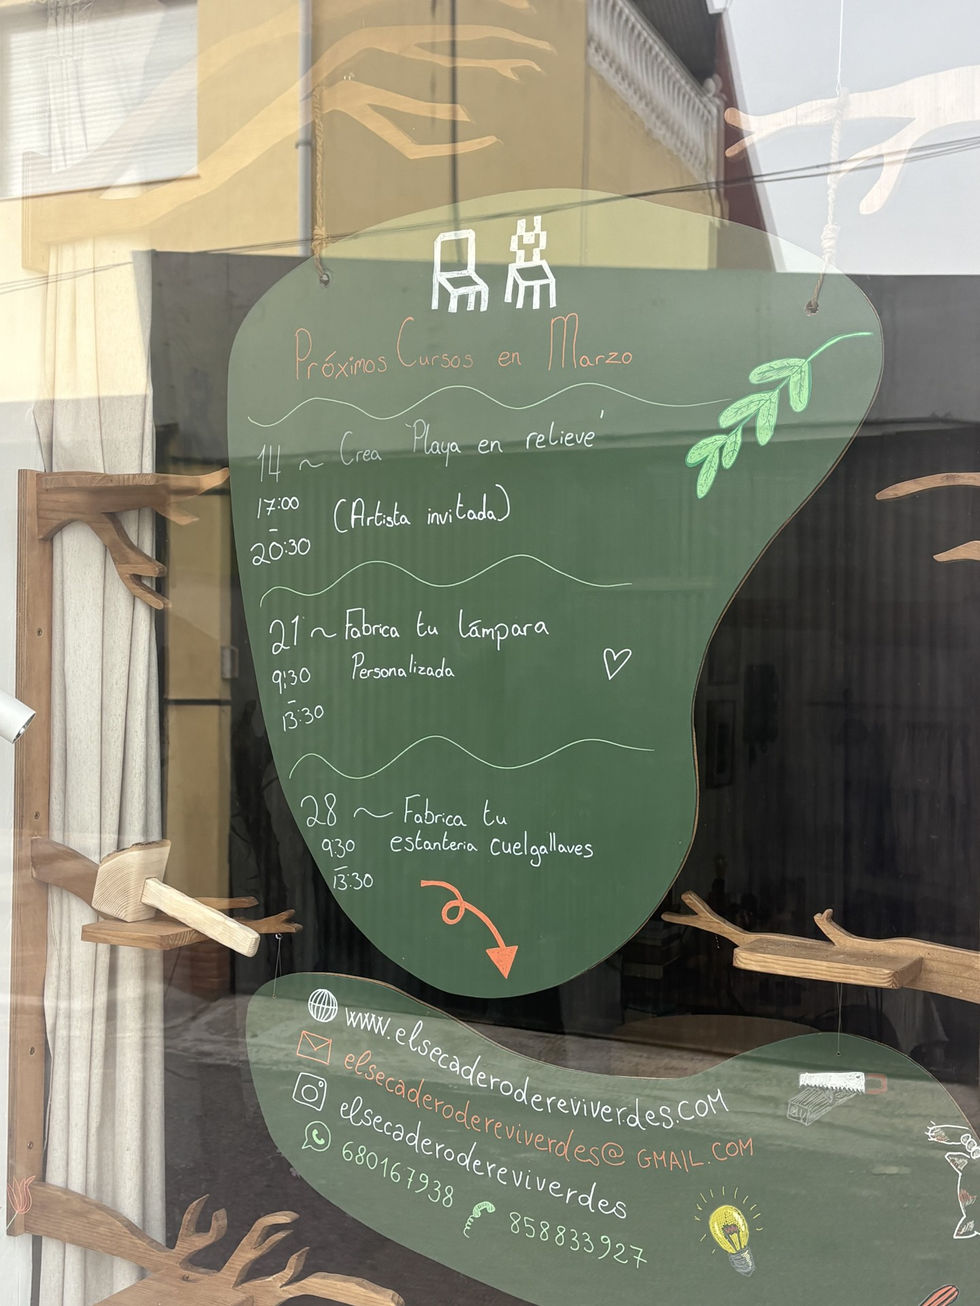 Próximos Cursos en Marzo
14 ~ Crea 'Playa en relieve'
17:00
-
20:30
(Artista invitada)
21 ~ Fabrica tu lámpara
9:30
-
13:30
Personalizada
28 ~ Fabrica tu
estanteria cuelgallaves
9:30
-
13:30
www.elsecaderodereviverdes.COM
elsecaderodereviverdes@GMAIL.COM
elsecaderodereviverdes
680167938 858833927